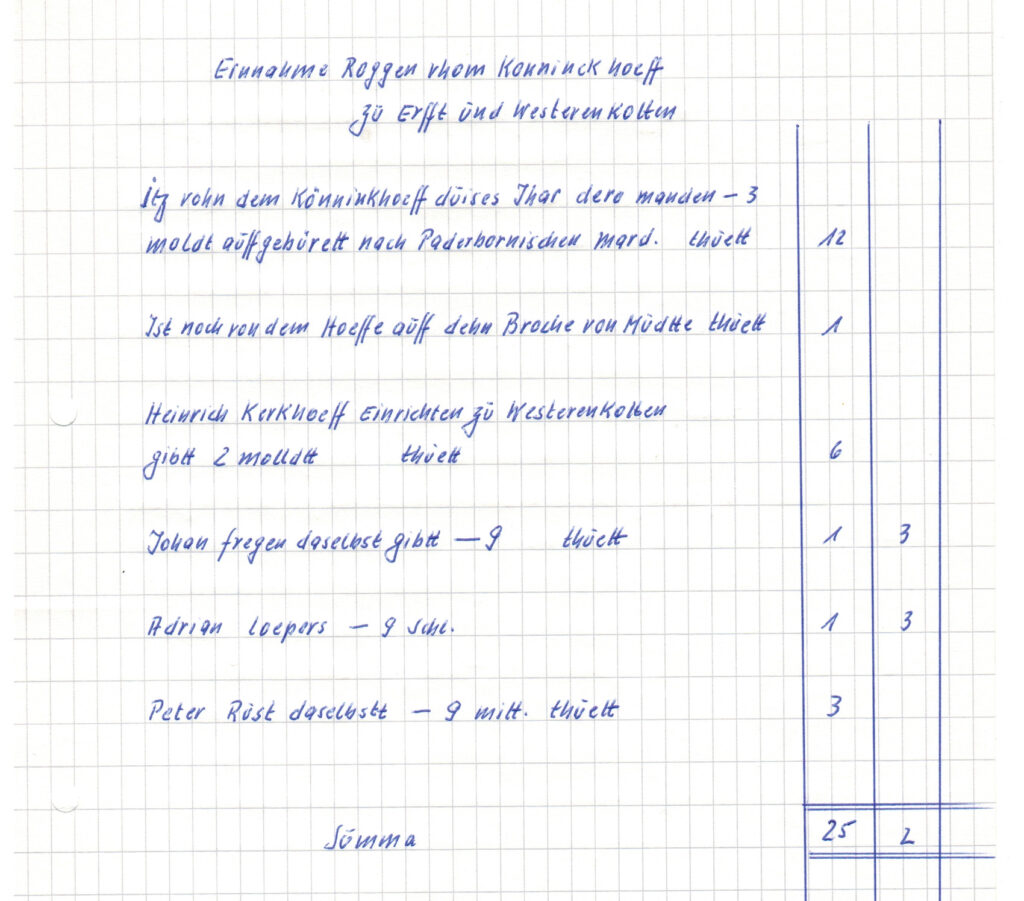 Einnahme Roggen vhom Konninck hoeff
zü Erfft ünd Westerenkotten
Itz vohn dem Könninkhoeff düises Jhar dero manden – 3
moldt aüffgebürett nach Paderbornischen Mard. thüett 12
Ist noch von dem Hoeffe aüff dehn Broche von Müdtte thüett 1
Heinrich Kerkhoeff Einrichten zü Westerenkotten
gibtt 2 molldtt thüett 6
Johan fregen daselbst gibtt — 9 thüett 1 3
Adrian Loepers — 9 Schl. 1 3
Peter Rüst daselbstt — 9 mitt. thüett 3
Sümma 25 2